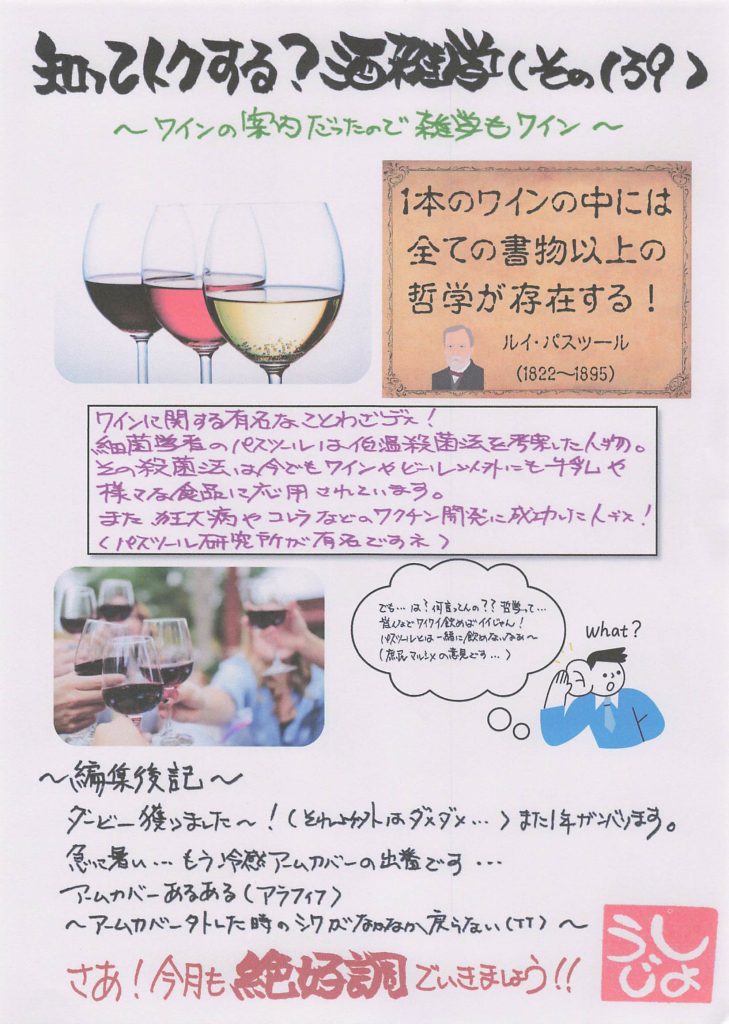 知ってトクする?酒雑学(その159)
~ワインの案内だったので雑学もワイン~
1本のワインの中には
全ての書物以上の
哲学が存在する!
ルイ・パスツール
(1822~1895)
ワインに関する有名なことわざデス!
細菌学者のパスツールは低温殺菌法を考案した人物。
その殺菌法は今でもワインやビール以外にも牛乳や
様々な食品に応用されています。
また狂犬病やコレラなどのワクチン開発に成功した人デス!
(パスツール研究所が有名ですネ)
でも…は?何言ってんの??哲学って…
皆んなでワイワイ飲めばイイじゃん!
パスツールとは一緒に飲めないなぁ~
(庶民マルシメの意見です…)
what?
~編集後記~
ダービー獲りました~!(それ以外はダメダメ…)また1年ガンバります。
急に暑い…もう冷感アームカバーの出番です…
アームカバーあるある(アラフィフ)
~アームカバー外した時のシワがなかなか戻らない(TT)~
さあ!今月も絶好調でいきましょう!!
うしじょ